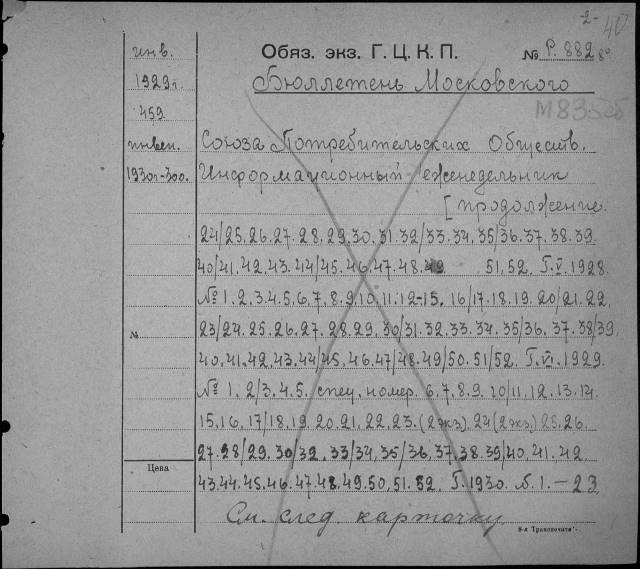 -2- 40
Обяз. экз. Г. Ц. К. П. № Р. 882 8°
инв.
1929 г.
459
инвен.
1930г-300.
Бюллетень Московского
М 83
Союза Потребительских Обществ.
Информационный еженедельник
[продолжение.
24/25.26.27.28.29.30.31.32/33.34.35/36.37.38.39
40/41.42.43.44/45.46.47.48.49 51,52. Г.V.1928.
№ 1.2.3.4.5.6.7.8.9.10.11.12-15. 16/17.18.19.20/21.22.
№
23/24.25.26.27.28.29.30/31.32.33.34.35/36.37.38/39.
40.41.42.43.44/45.46.47/48.49/50.51/52. Г.VI.1929.
№ 1.2/3.4.5. спец. номер. 6.7.8.9.10/11.12.13.14.
15.16.17/18.19.20.21.22.23.(2экз).24(2экз.)25.26.
27.28/29.30/32.33/34.35/36.37.38.39/40.41.42
Цена
43.44.45.46.47.48.49.50,51.52. Г.1930. №.1.-23
См. след. карточку
8-я Транспечати